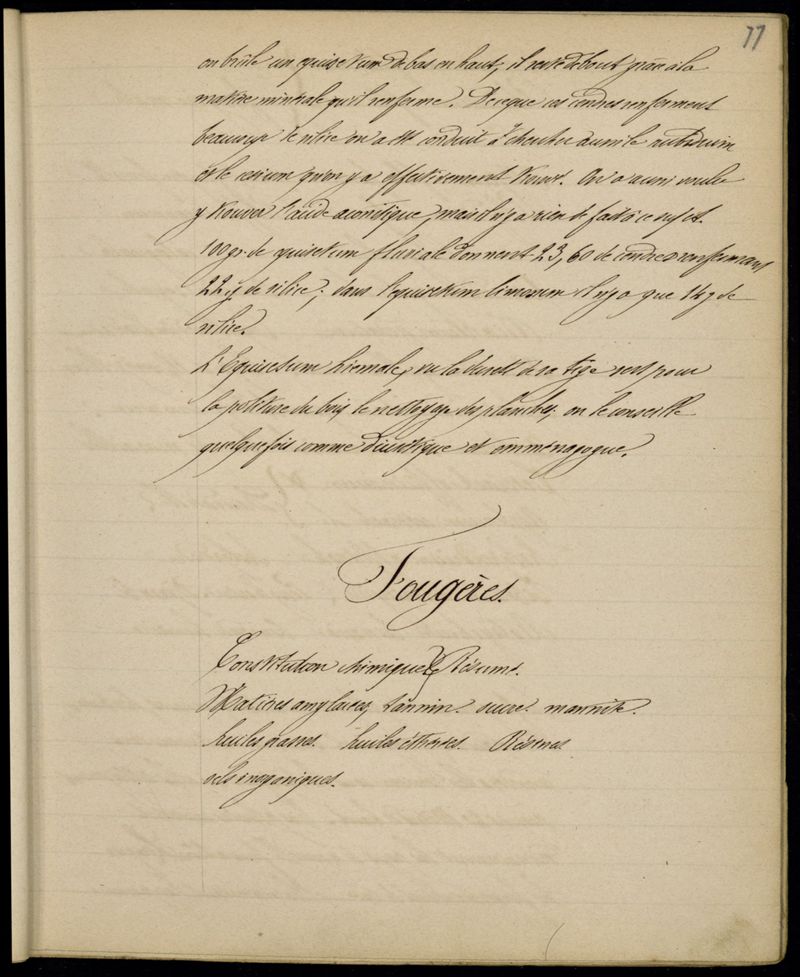 77
on brûle un equisetum de bas en haut, il reste debout grâce à la
matière minérale qu'il renferme. De ce que ces cendres renferment
beaucoup de silice on a été conduit à chercher aussi le rubidium
et le cesium qu'on y a effectivement trouvé. On a aussi voulu
y trouver l'acide aconitique, mais il n'y a rien de fait à ce sujet.
100 gr. de equisetum fluviale donnent 23,60 de cendres renfermant
22 g de silice; dans l'equisetum limosum il n'y a que 14 g de
silice.
L'Equisetum hiemale, vu la dureté de sa tige sert pour
la politure du bois, le nettoyage des planches; on le conseille
quelquefois comme diurétique et emménagogue.
Fougères.
Constitution chimique. Résumé.
Matières amylacées, tannin. sucre. mannite.
huiles grasses. huiles éthérées. Résines
sels inorganiques.